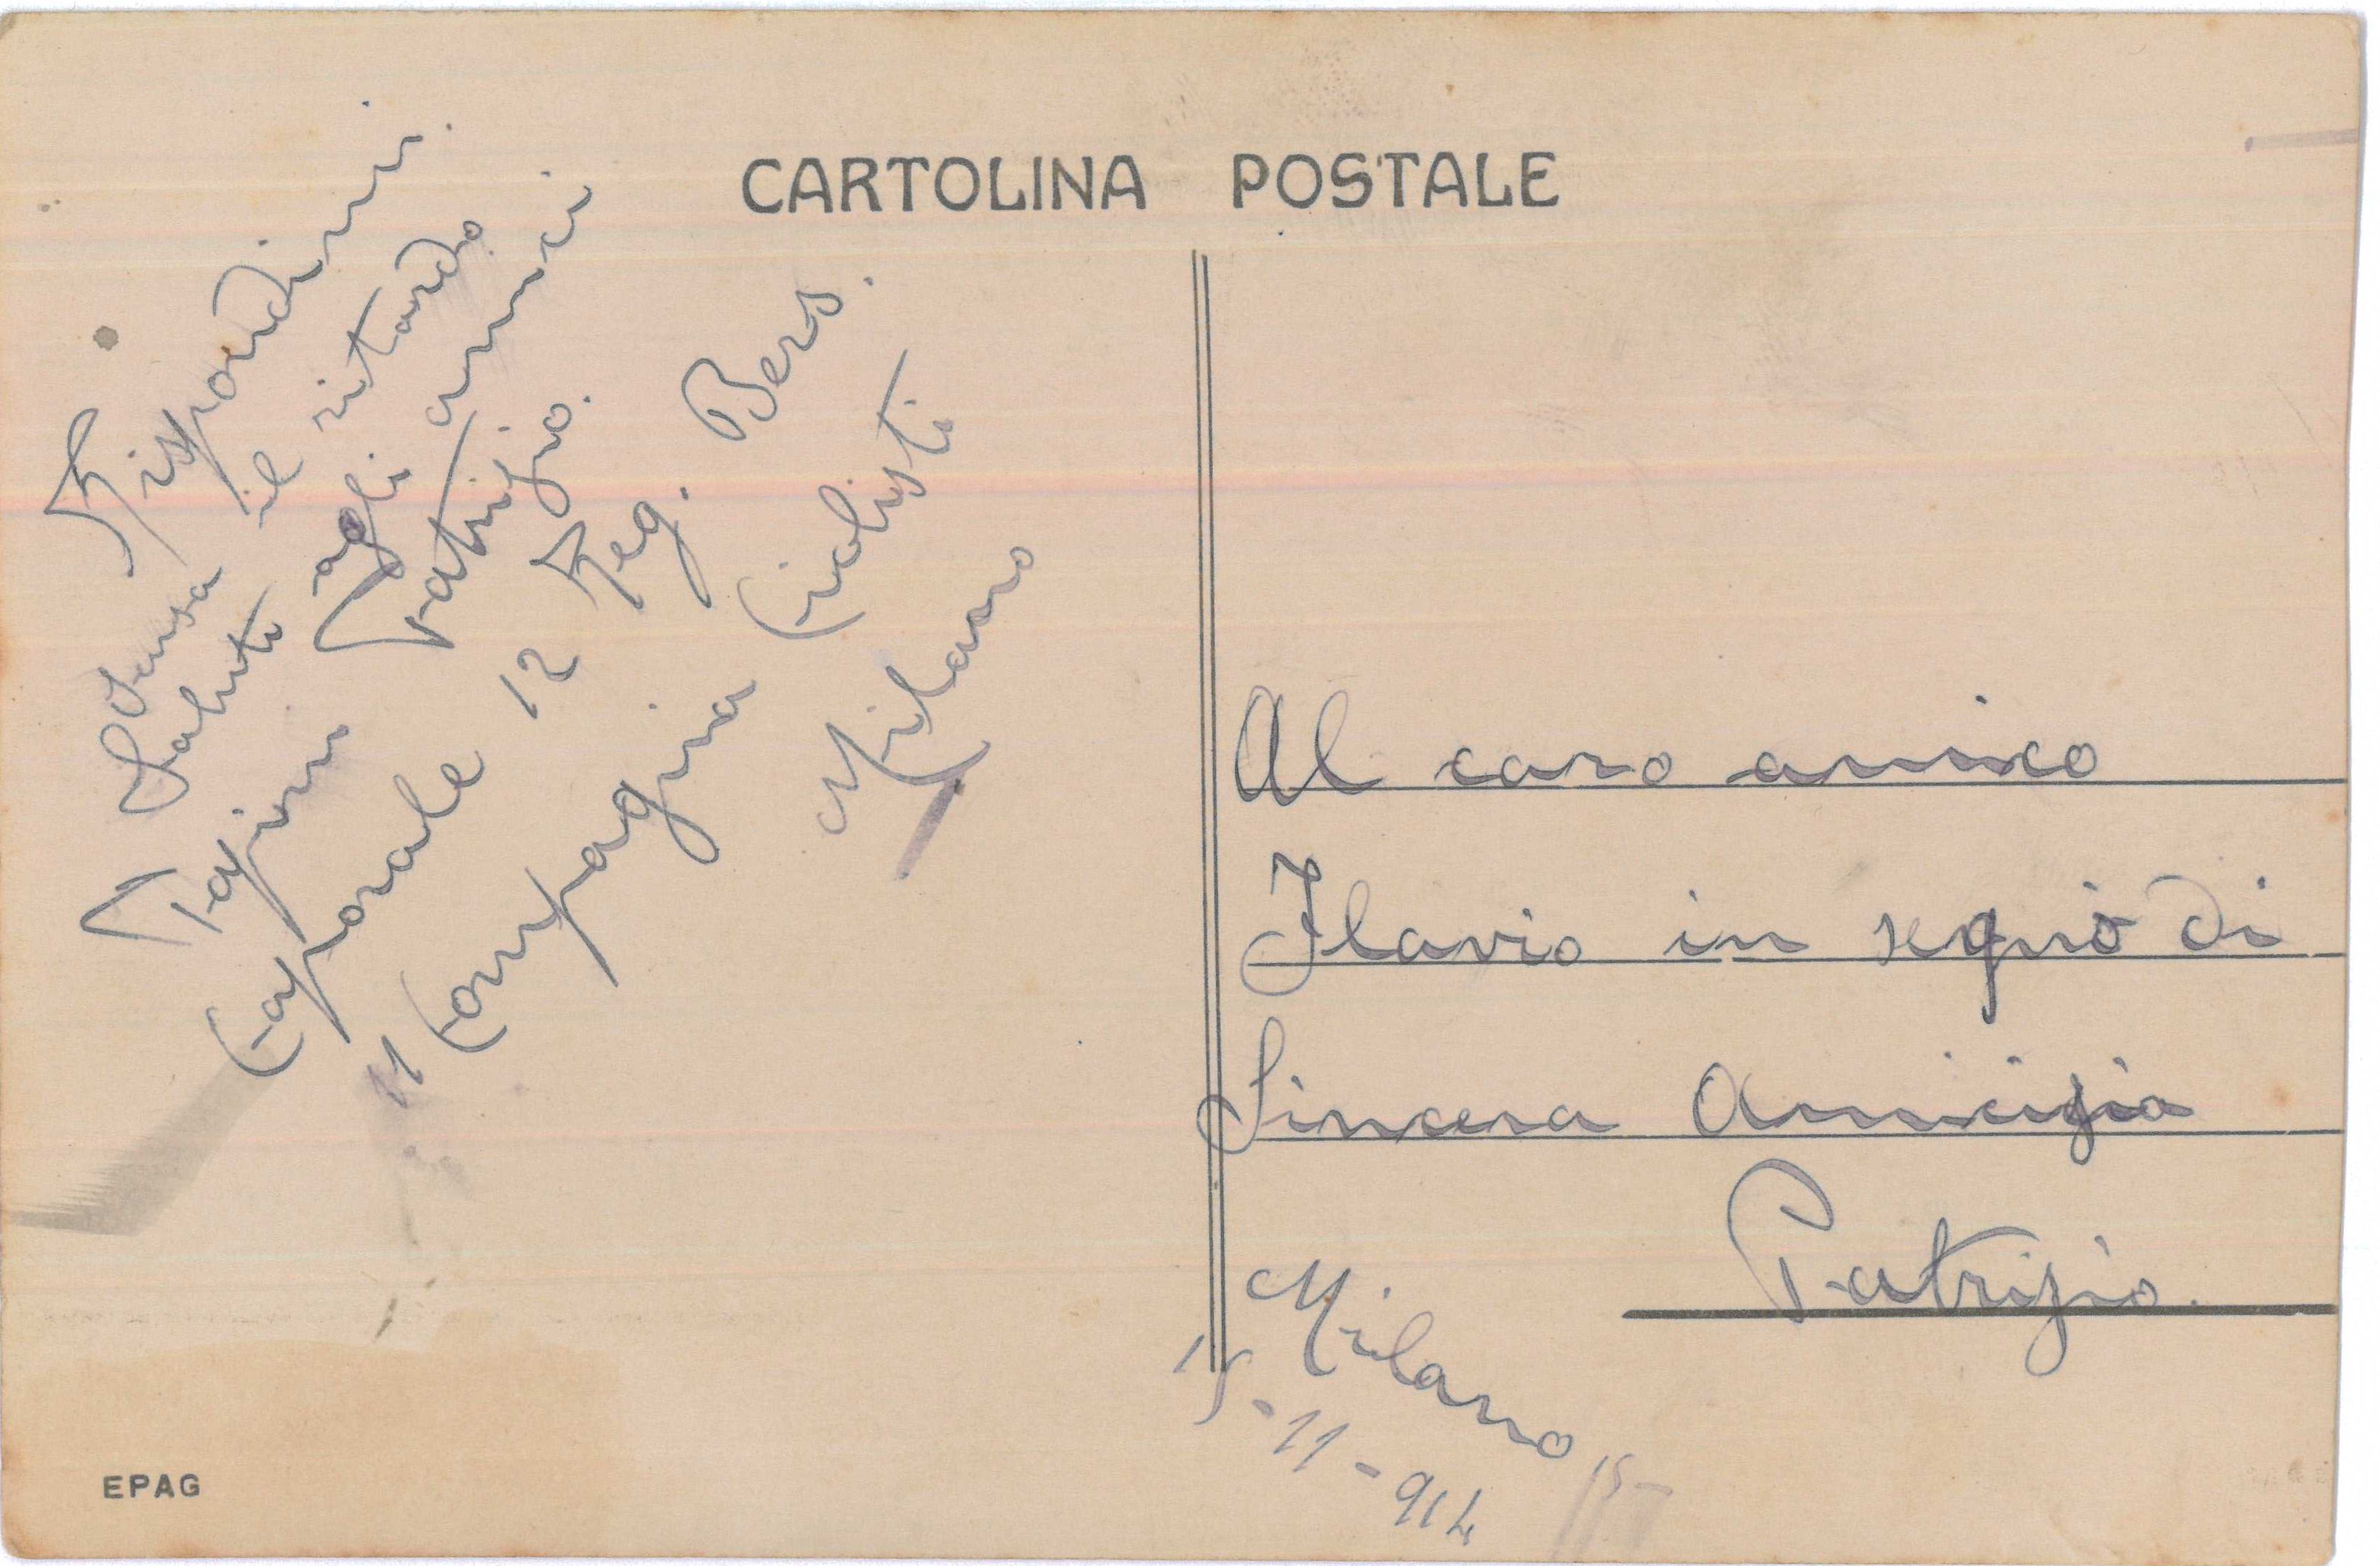 CARTOLINA POSTALE
Rispondimi.
Scusa il ritardo
Saluti agli amici
Papini Patrizio.
Caporale 12 Reg. Bers.
11 Compagnia Ciclisti
Milano
Al caro amico
Flavio in segno di
Sincera Amicizia
Patrizio.
Milano
15-11-914
EPAG